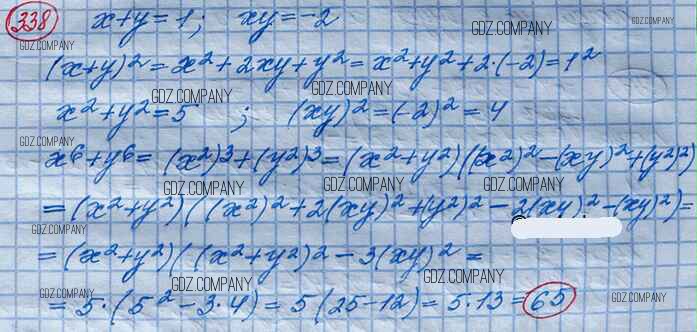 338 x+y=1; xy=-2 GDZ.COMPANY GDZ.COMPANY
GDZ.COMPANY
(x+y)²=x²+2xy+y²=x²+y²+2·(-2)=1²
GDZ.COMPANY
x²+y²=5 ; (xy)²=(-2)²=4
GDZ.COMPANY GDZ.COMPANY
x⁶+y⁶= (x²)³+(y²)³=(x²+y²)((x²)²-(xy)²+(y²)²)
GDZ.COMPANY GDZ.COMPANY GDZ.COMPANY
=(x²+y²)((x²)²+2(xy)²+(y²)²-2(xy)²-(xy)²)=
GDZ.COMPANY
=(x²+y²)((x²+y²)²-3(xy)²=
GDZ.COMPANY GDZ.COMPANY GDZ.COMPANY GDZ.COMPANY
=5·(5²-3·4)=5(25-12)=5·13=65